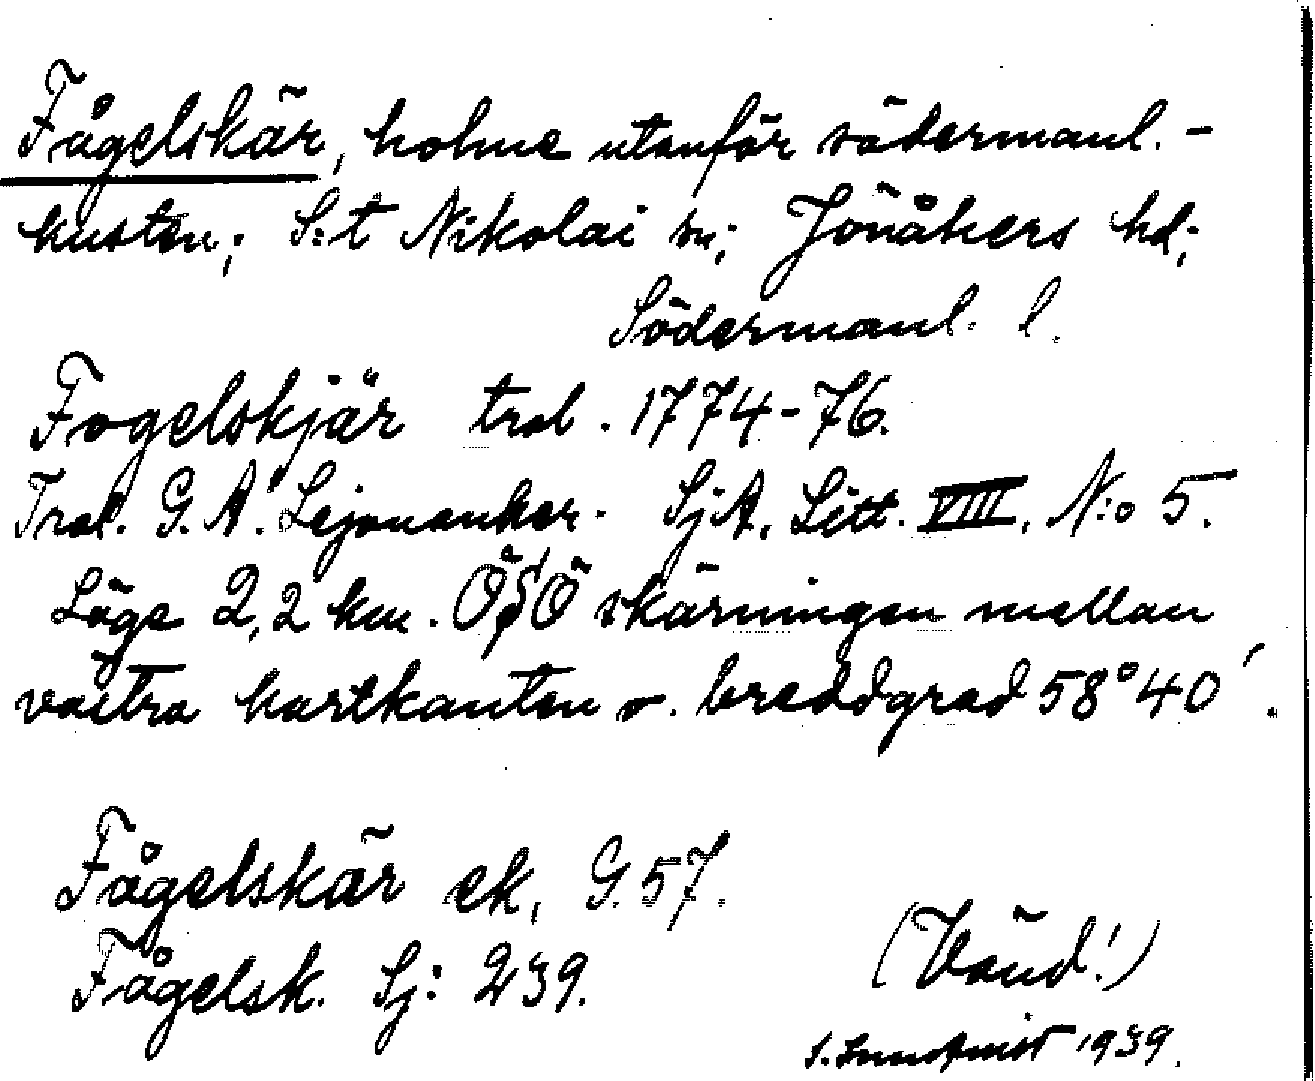 Fågelskär, holme utanför södermanl.-
kusten; S:t Nikolai sn; Jönåkers hd;
Södermanl. l.
Fogelskjär trol. 1774-76.
Trol. G. A. Lejonanker. SjA. Litt. VIII, N:o 5.
Läge 2,2 km. OSO skärningen mellan
västra kartkanten o. breddgrad 58° 40'.
Fågelskär ek. G. 57.
Fågelsk. Sj: 239.
(Vänd!)
S. Sundqvist 1939.